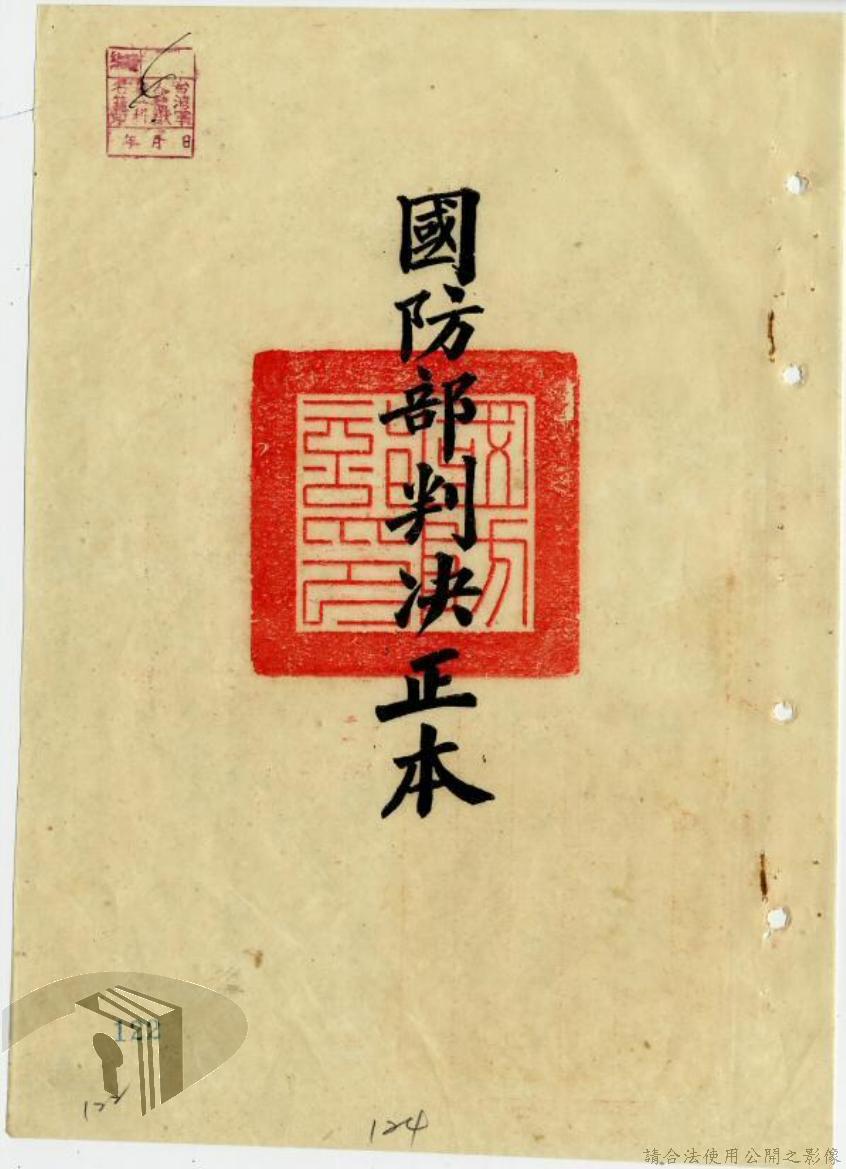 國防部判決正本
年 月 日
122
124
請合法使用公開之影像